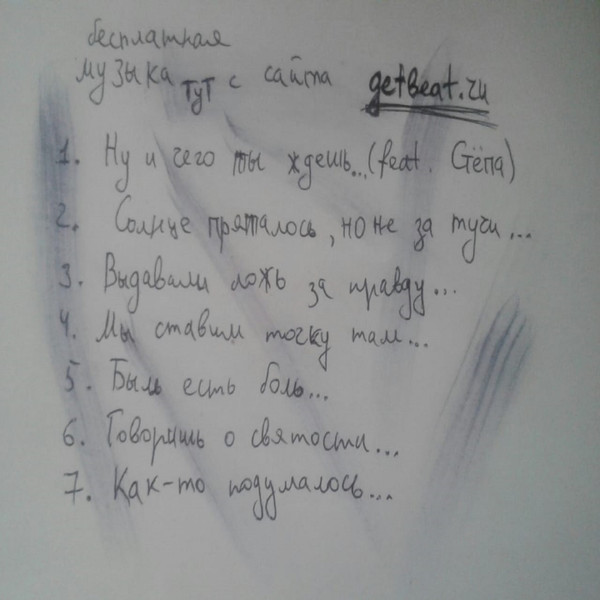 бесплатная
музыка тут с сайта getbeat.ru
1. Ну и чего ты ждешь...(feat. Стёпа)
2. Солнце пряталось, но не за тучи...
3. Выдавали ложь за правду...
4. Мы ставим точку там...
5. Быль есть боль...
6. Говоришь о святости...
7. Как-то подумалось...